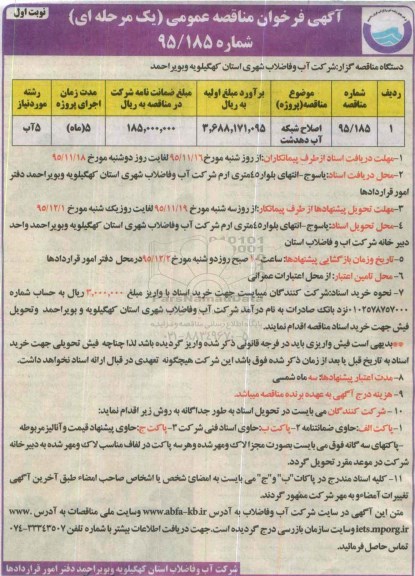 نوبت اول
آگهی فرخوان مناقصه عمومی (یک مرحله ای)
شماره ۹۵/۱۸۵
دستگاه مناقصه گزار:شرکت آب وفاضلاب شهری استان کهگیلویه وبویراحمد
ردیف شماره مناقصه موضوع مناقصه(پروژه) برآورد مبلغ اولیه به ریال مبلغ ضمانت نامه شرکت در مناقصه به ریال مدت زمان اجرای پروژه رشته موردنیاز
۱ ۹۵/۱۸۵ اصلاح شبکه آب دهدشت ۳,۶۸۸,۱۷۱,۰۹۵ ۱۸۵,۰۰۰,۰۰۰ ۵(ماه) ۵آب
۱-مهلت دریافت اسناد ازطرف پیمانکاران:از روز شنبه مورخ ۹۵/۱۱/۱۶ لغایت روز دوشنبه مورخ ۹۵/۱۱/۱۸
۲-محل دریافت اسناد:یاسوج-انتهای بلوار۴۵متری ارم شرکت آب وفاضلاب شهری استان کهگیلویه وبویراحمد دفتر
امور قراردادها
۳-مهلت تحویل پیشنهادها از طرف پیمانکار:از روزسه شنبه مورخ ۹۵/۱۱/۱۹ لغایت روزیک شنبه مورخ ۹۵/۱۲/۱
۴-محل تحویل اسناد:یاسوج-انتهای بلوار۴۵متری ارم شرکت آب وفاضلاب شهری استان کهگیلویه وبویراحمد واحد
دبیر خانه شرکت اب و فاضلاب استان
۵-تاریخ وزمان بازگشایی پیشنهادها:ساعت۱۰ صبح روزدو شنبه مورخ ۹۵/۱۲/۲درمحل دفتر امور قراردادها
۶-محل تامین اعتبار: از محل اعتبارات عمرانی
۷- نحوه خرید اسناد:شرکت کنندگان میبایست جهت خرید اسناد با واریز مبلغ ۳,۰۰۰,۰۰۰ ریال به حساب شماره
۰۱۰۲۵۷۸۷۵۷۰۰۰نزد بانک صادرات به نام درآمد شرکت آب وفاضلاب شهری استان کهگیلویه و بویراحمد وتحویل
فیش جهت خرید اسناد مناقصه اقدام نمایند.
**بدیهی است فیش واریزی باید در فرجه قانونی ذکر شده واریز گردیده باشد لذا چناچه فیش تحویلی جهت خرید
اسناد به تاریخ قبل یا بعد از زمان ذکر شده فوق باشد این شرکت هیچگونه تعهدی در قبال ارائه اسناد نخواهد داشت.
۸- مدت اعتبار پیشنهادها: سه ماه شمسی
۹- هزینه درج آگهی به عهده برنده مناقصه میباشد.
۱۰-شرکت کنندگان می بایست در تحویل اسناد به طور جداگانه به روش زیر اقدام نمایند:
۱-پاکت الف:حاوی ضمانتنامه ۲-پاکت ب:حاوی اسناد فنی شرکت ۳-پاکت ج:حاوی پیشنهاد قیمت وآنالیزمربوطه
-پاکتهای سه گانه فوق می بایست بصورت مجزا لاک ومهرشده وهرسه پاکت در لفاف مناسب لاک ومهر شده به دبیرخانه
شرکت در موعد مقرر تحویل گردد.
۱۱- کلیه اسناد مندرج در پاکات"ب"و"ج"می بایست به امضائ شخص یا اشخاص صاحب امضاء طبق آخرین آگهی
تغییرات امضاءو به مهر شرکت ممهور گردند.
متن این آگهی در سایت شرکت آب وفاضلاب به آدرس www.abfa-kb.ir وسایت ملی مناقصات به آدرس www.
iets.mporg.irوسایت سازمان بازرسی درج گردیده است.جهت دریافت اطلاعات بیشتر با شماره تلفن ۳۳۳۴۳۵۰۷-۰۷۴
تماس حاصل فرمائید.
شرکت آب وفاضلاب استان کهگیلویه وبویراحمد دفتر امور قراردادها